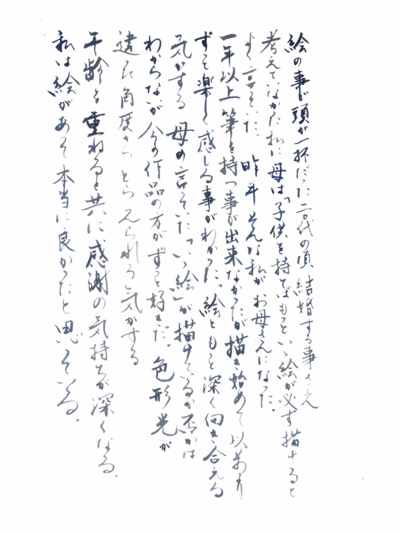 絵の事で頭が一杯だった二十代の頃 結婚する事さえ
考えてなかった私に母は「子供を持てばもっといい絵が必ず描ける」と
よく言っていた。昨年そんな私がお母さんになった。
一年以上筆を持つ事が出来なかったが描き始めて以前より
ずっと楽しく感じる事がわかった。絵ともっと深く向き合える
気がする 母の言っていた「いい絵」が描けているか否かは
わからないが 今の作品の方がずっと好きだ 色 形 光が
違った角度からとらえられる気がする
年齢を重ねると共に感謝の気持ちが深くなる。
私は絵があって本当に良かったと思っている。